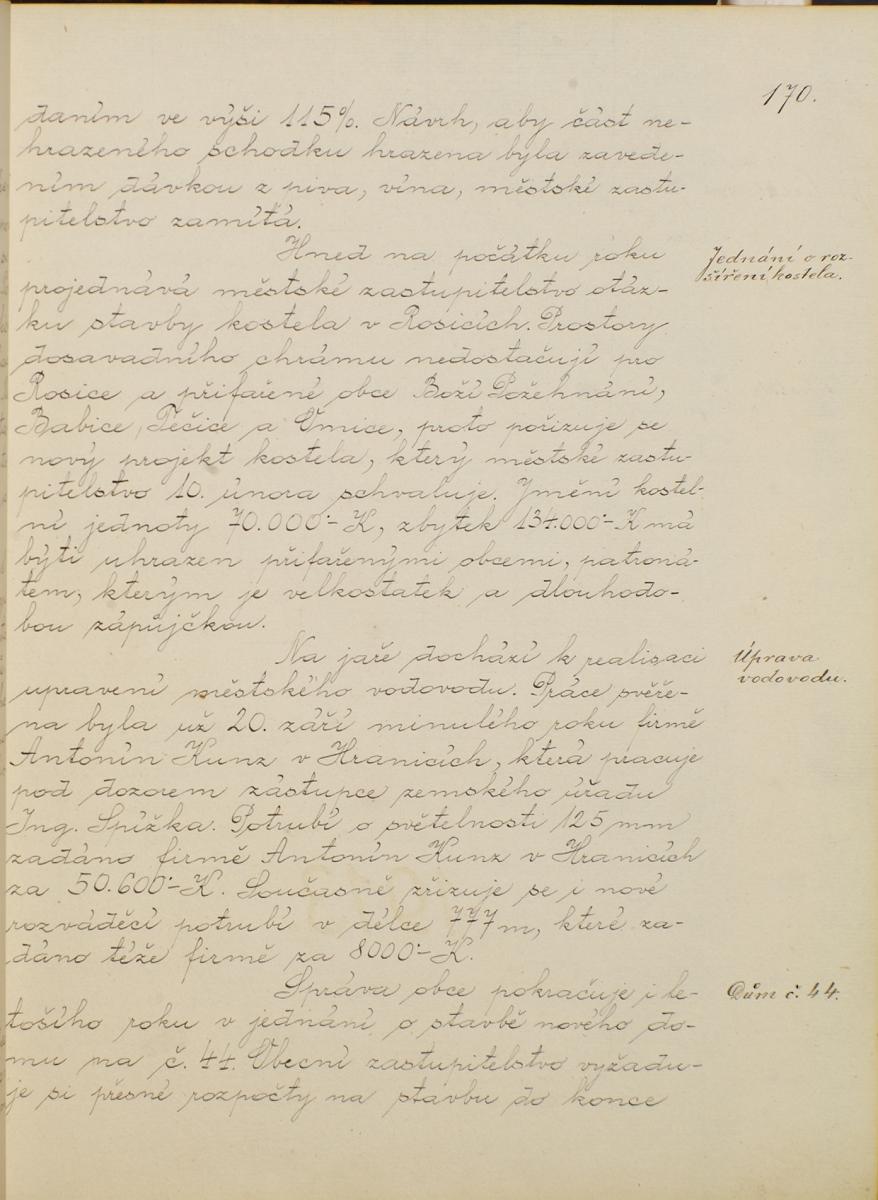 170.
daním ve výši 115%. Návrh, aby část ne-
hrazeného schodku hrazena byla zavede-
ním dávkou z piva, vína, městské zastu-
pitelstvo zamítá.
Hned na počátku roku
Jednání o roz-
šíření kostela.
projednává městské zastupitelstvo otáz-
ku stavby kostela v Rosicích. Prostory
dosavadního chrámu nedostačují pro
Rosice a přifařené obce Boží Požehnání,
Babice, Těčice a Omice, proto pořizuje se
nový projekt kostela, který městské zastu-
pitelstvo 10. února schvaluje. Jmění kostel-
ní jednoty 70.000·- K, zbytek 134.000·- K má
býti uhrazen přifařenými obcemi, patroná-
tem, kterým je velkostatek a dlouhodo-
bou zápůjčkou.
Na jaře dochází k realisaci
Úprava
vodovodu.
upravení městského vodovodu. Práce svěře-
na byla už 20. září minulého roku firmě
Antonín Kunz v Hranicích, která pracuje
pod dozorem zástupce zemského úřadu
Ing. Spížka. Potrubí o světelnosti 125 mm
zadáno firmě Antonín Kunz v Hranicích
za 50.600·- K. Současně zřizuje se i nové
rozváděcí potrubí v délce 777 m, které za-
dáno téže firmě za 8000·- K.
Správa obce pokračuje i le-
Dům č. 44.
tošího roku v jednání o stavbě nového do-
mu na č. 44. Obecní zastupitelstvo vyžadu-
je si přesné rozpočty na stavbu do konce